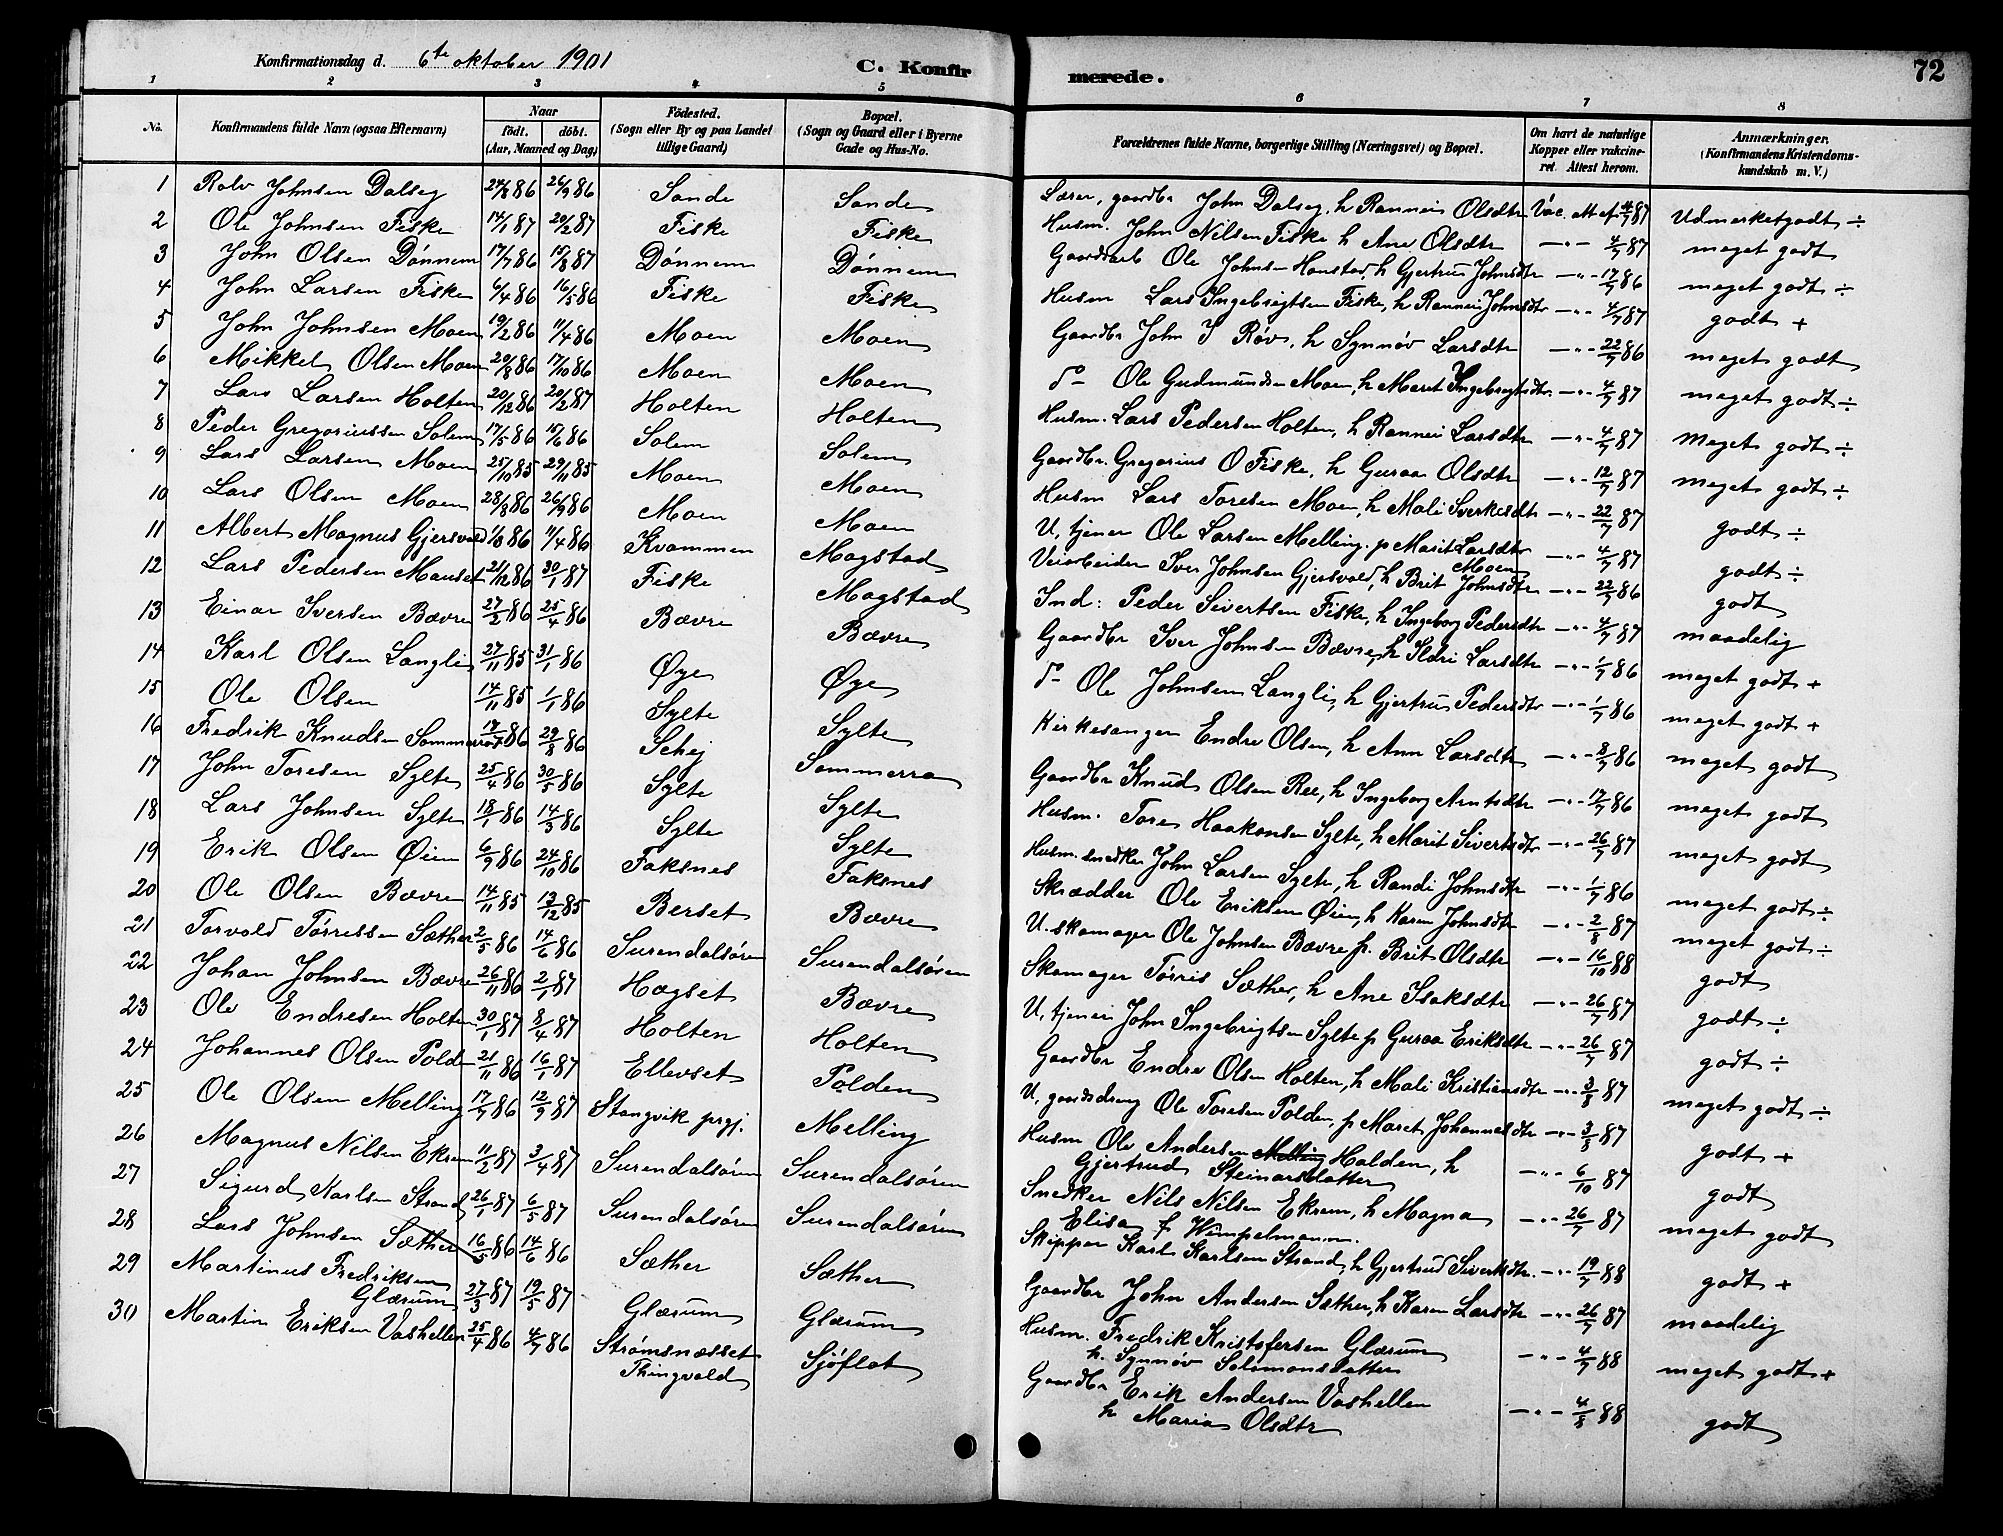 Konfirmationsdag d. 6te oktober 1901 C. Konfirmerede. 72
1 2 3 4 5 6 7 8
No. Konfirmandens fulde Navn (ogsaa Efternavn) Naar født. døbt. (Aar, Maaned og Dag) Fødested. (Sogn eller By og paa Landet tillige Gaard) Bopæl. (Sogn og Gaard eller i Byerne Gade og Hus-No. Forældrenes fulde Navne, borgerlige Stilling (Næringsvei) og Bopæl. Om havt de naturlige Kopper eller vakcineret. Attest herom. Anmærkninger. (Konfirmandens Kristendomskundskab m. V.)
1 Rolv Johnsen Dalseg 24/8 86 26/9 86 Sande Sande Lærer, gaardbr John Dalseg, h Rannei Olsdtr Vac. att af 4/7 87 Udmerketgodt ÷
2 Ole Johnsen Fiske 14/1 87 20/2 87 Fiske Fiske Husm. John Nilsen Fiske h Ane Olsdtr –"– 4/7 87 meget godt
3 John Olsen Dønnem 17/7 86 15/8 87 Dønnem Dønnem Gaardarb Ole Johnsen Honstad, h Gjertru Johnsdtr –"– 17/7 86 meget godt ÷
4 John Larsen Fiske 6/4 86 16/5 86 Fiske Fiske Husm Lars Ingebrigtsen Fiske, h Rannei Johnsdtr –"– 4/7 87 godt +
5 John Johnsen Moen 19/2 86 11/4 86 Moen Moen Gaardbr John I Røv, h Synnøv Larsdtr –"– 22/7 86 meget godt
6 Mikkel Olsen Moen 20/8 86 17/10 86 Moen Moen do Ole Gudmundsen Moen, h Marit Ingebrigtsdtr –"– 4/7 87 meget godt ÷
7 Lars Larsen Holten 20/12 86 20/2 87 Holten Holten Husm. Lars Pedersen Holten, h Rannei Larsdtr –"– 4/7 87 meget godt ÷
8 Peder Gregoriussen Solem 17/5 86 15/6 86 Solem Solem Gaardbr. Gregorius O Fiske, h Guraa Olsdtr –"– 12/7 87 meget godt ÷
9 Lars Larsen Moen 25/10 85 29/11 85 Moen Moen Husm Lars Toresen Moen, h Mali Sverkesdtr –"– 22/7 87 godt ÷
10 Lars Olsen Moen 28/8 86 26/9 86 Moen Moen U, tjener Ole Larsen Melling, p Marit Larsdtr Moen –"– 4/7 87 godt ÷
11 Albert Magnus Gjersvold 1/3 86 11/4 86 Kvammen Magstad Veiarbeider Iver Johnsen Gjersvold, h Brit Johnsdtr –"– 22/7 86 godt
12 Lars Pedersen Mauset 21/12 86 30/1 87 Fiske Magstad Ind: Peder Sivertsen Fiske, h Ingeborg Pedersdtr –"– 4/7 87 maadelig
13 Einar Iversen Bævre 27/2 86 25/4 86 Bævre Bævre Gaardbr Iver Johnsen Bævre, h Ildri Larsdtr –"– 1/7 86 meget godt +
14 Karl Olsen Langli 27/11 85 31/1 86 Øye Øye do Ole Johnsen Langli, h Gjertru Pedersdtr –"– 1/7 86 meget godt +
15 Ole Olsen 14/11 85 1/1 86 Sylte Sylte Kirkesanger Endre Olsen, h Ann Larsdtr –"– 8/7 86 meget godt
16 Fredrik Knudsen Sommerrot 17/7 86 29/8 86 Schej Sommerro Gaardbr Knud Olsen Ree, h Ingeborg Arntsdtr –"– 17/7 86 meget godt
17 John Toresen Sylte 25/4 86 30/5 86 Sylte Sylte Husm. Tore Haakonsen Sylte, h Marit Sivertsdtr –"– 26/7 87 meget godt
18 Lars Johnsen Sylte 18/1 86 14/3 86 Sylte Sylte Husm. snedker John Larsen Sylte, h Randi Johnsdtr –"– 1/7 86 meget godt ÷
19 Erik Olsen Øien 6/9 86 24/10 86 Faksnes Faksnes Skrædder Ole Eriksen Øien, h Karen Johnsdtr –"– 2/8 87 meget godt ÷
20 Ole Olsen Bævre 14/11 85 13/12 85 Berset Bævre U. skomager Ole Johnsen Bævre p. Brit Olsdtr –"– 16/10 88 godt
21 Torvald Tørrissen Sæther 2/5 86 14/6 86 Surendalsøren Surendalsøren Skomager Tørris Sæther, h Ane Isaksdtr –"– 26/7 87 godt ÷
22 Johan Johnsen Bævre 26/11 86 2/1 87 Hægset Bævre U, tjener John Ingebrigtsen Sylte p Guraa Eriksdtr –"– 26/7 87 godt ÷
23 Ole Endresen Holten 30/1 87 8/4 87 Holten Holten Gaardbr Endre Olsen Holten, h Mali Kristiansdtr –"– 3/8 87 meget godt ÷
24 Johannes Olsen Polden 21/11 86 16/1 87 Ellevset Polden U, gaardsdreng Ole Toresen Polden, p Maret Johannesdtr –"– 3/8 87 godt +
25 Ole Olsen Melling 17/7 86 12/9 87 Stangvik prgj. Melling Husm Ole Andersen Melling Halden, h
Gjertrud Steinarsdatter –"– 6/10 87 godt
26 Magnus Nilsen Ekrem 11/2 87 3/4 87 Surendalsøren Surendalsøren Snedker Nils Nilsen Ekrem, h Magna
Elisa f Wimpelmann. –"– 26/7 87 meget godt
27 Sigurd Karlsen Strand 26/1 87 6/5 87 Surendalsøren Surendalsøren Skipper Karl Karlsen Strand, h Gjertrud Siverksdtr. –"– 19/7 88 godt +
28 Lars Johnsen Sæther 16/5 86 14/6 86 Sæther Sæther Gaardbr John Andersen Sæther, h Karen Larsdtr –"– 26/7 87 maadelig
29 Martinus Fredriksen
Glærum 27/3 87 19/5 87 Glærum Glærum Husm. Fredrik Kristofersen Glærum
h. Synnøv Salomonsdatter –"– 4/7 88 meget godt +
30 Martin Eriksen Vashellen 25/4 86 4/7 86 Strømsnæsset
Thingvold Sjøflot Gaardbr Erik Andersen Vashellen
h Maria Olsdtr –"– 4/8 88 godt